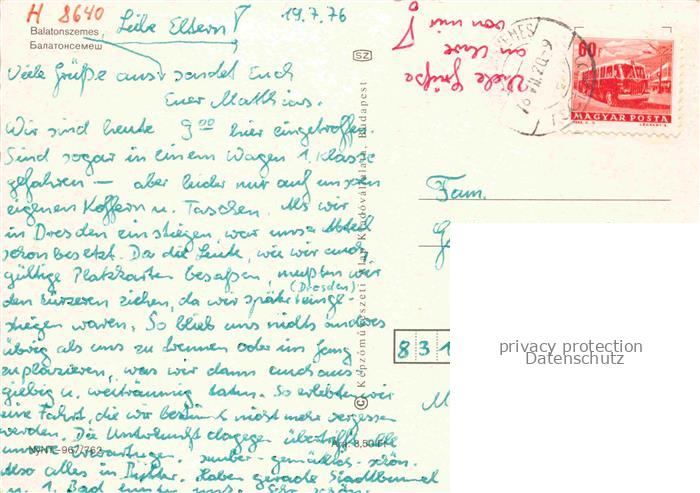 H 8640
19.7.76
Balatonszemes
Балатонсемеш
Liebe Eltern!
Viele Grüße aus sendet Euch
Euer Matthias.
Wir sind heute 9⁰⁰ hier eingetroffen
Sind sogar in einem Wagen 1. Klasse
gefahren — aber leider nur auf unseren
eigenen Koffern u. Taschen. Als wir
in Dresden einstiegen, war unser Abteil
schon besetzt. Da die Leute, wie wir auch,
gültige Platzkarten besaßen, mußten wir
den kürzeren ziehen, da wir später (Dresden) einge-
stiegen waren. So blieb uns nichts anderes
übrig als uns zu trennen oder im Gang
zu plazieren, was wir dann auch aus-
giebig u. weiträumig taten. So erlebten wir
eine Fahrt, die wir bestimmt nicht mehr vergessen
werden. Die Unterkunft dagegen übertrifft alle
unsere Erwartungen. sauber - gemütlich - schön.
Also alles in Butter. Haben gerade Stadtbummel
u. 1. Bad hinter uns. Sehr schön.
NyNT.-967/762
Ára: 8,50 Ft
© Képzőművészeti Alap Kiadóvállalata, Budapest
SZ
Viele Grüße
an Uwe
von mir!
76 VII. 20. -9
60 f
MAGYAR POSTA
Fam.
831
privacy protection
Datenschutz